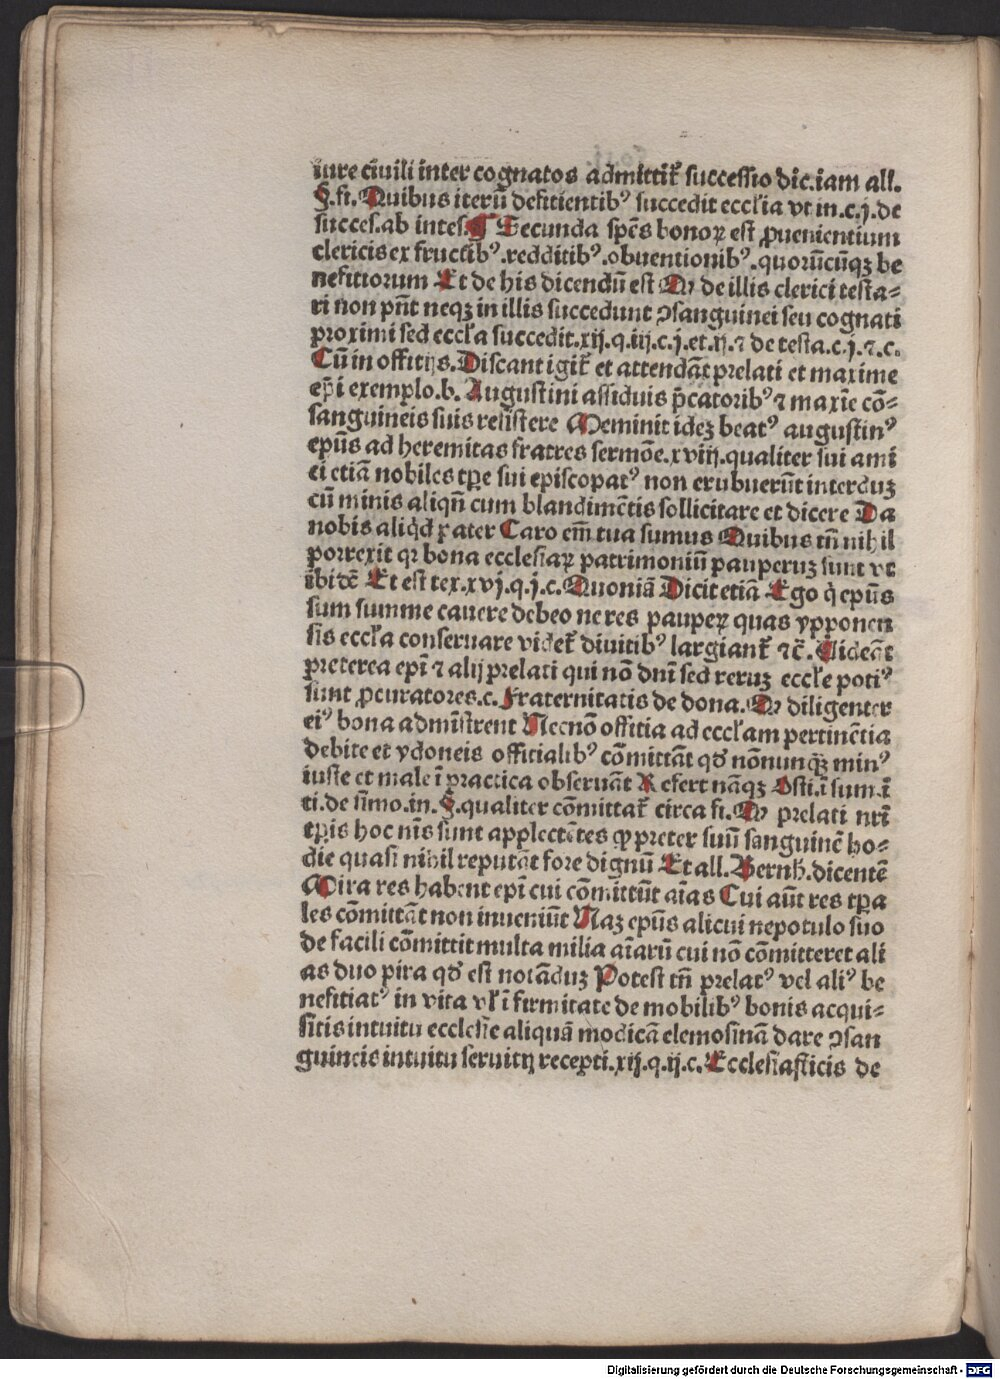 iure ciuili inter cognatos admittit̄ successio dic̄.iam all.
§.fi. Quibus iterū defitientibꝰ succedit eccl̄ia vt in.c.j.de
succes.ab intes.¶ Secunda spēs bonoꝝ est ꝓuenientium
clericis ex fructibꝰ.redditibꝰ.obuentionibꝰ.quorūcūqꝫ be
nefitiorum Et de his dicendū est Ꝙ de illis clerici testa-
ri non pn̄t neqꝫ in illis succedunt ↄsanguinei seu cognati
proximi sed eccl̄a succedit.xij.q.iij.c.j.et.ij.⁊ de testa.c.j.⁊.c.
Cū in offitijs.Discant igit̄ et attendāt prelati et maxime
ep̄i exemplo.b. Augustini assiduis p̄catoribꝰ ⁊ maxīe cō-
sanguineis suis resistere Meminit ideꝫ beatꝰ augustinꝰ
epūs ad heremitas fratres sermōe.xviij.qualiter sui ami
ci etiā nobiles tꝑe sui episcopatꝰ non erubuerūt interduꝫ
cū minis aliqn̄ cum blandimētis sollicitare et dicere Da
nobis aliq̇d pater Caro em̄ tua sumus Quibus tn̄ nihil
porrexit qꝛ bona ecclesiaꝝ patrimoniū pauperuꝫ sunt vt
ibidē Et est tex.xvj.q.j.c.Quoniā Dicit etiā Ego q̇ epūs
sum summe cauere debeo ne res paupeꝝ quas ypponen
sis eccl̄a conseruare videt̄ diuitibꝰ largiant̄ ⁊c̄. Uideāt
preterea ep̄i ⁊ alij prelati qui nō dn̄i sed reruꝫ eccl̄e potiꝰ
sunt ꝓcuratores.c.Fraternitatis de dona.Ꝙ diligenter
eiꝰ bona admīstrent Necnō offitia ad eccl̄am pertinētia
debite et ydoneis offitialibꝰ cōmittāt qď nōnunꝙꝫ minꝰ
iuste et male ī practica obseruāt Refert nāqꝫ Osti.ī sum.ī
ti.de simo.in.§.qualiter cōmittat̄ circa fi.Ꝙ prelati nr̄i
tꝑis hoc nīs sunt applectētes ꝙ preter suū sanguinē ho-
die quasi nihil reputāt fore dignū Et all.Bernh.dicentē
Mira res habent ep̄i cui cōmittūt aīas Cui aūt res tꝑa
les cōmittāt non inueniūt Naꝫ epūs alicui nepotulo suo
de facili cōmittit multa milia aīarū cui nō cōmitteret ali
as duo pira qď est notāduꝫ Potest tn̄ prelatꝰ vel aliꝰ be
nefitiatꝰ in vita vl̄ ī firmitate de mobilibꝰ bonis acqui-
sitis intuitu ecclesie aliquā modicā elemosinā dare ↄsan
guineis intuitu seruitij recepti.xij.q.ij.c.Ecclesiasticis de
Digitalisierung gefördert durch die Deutsche Forschungsgemeinschaft - DFG